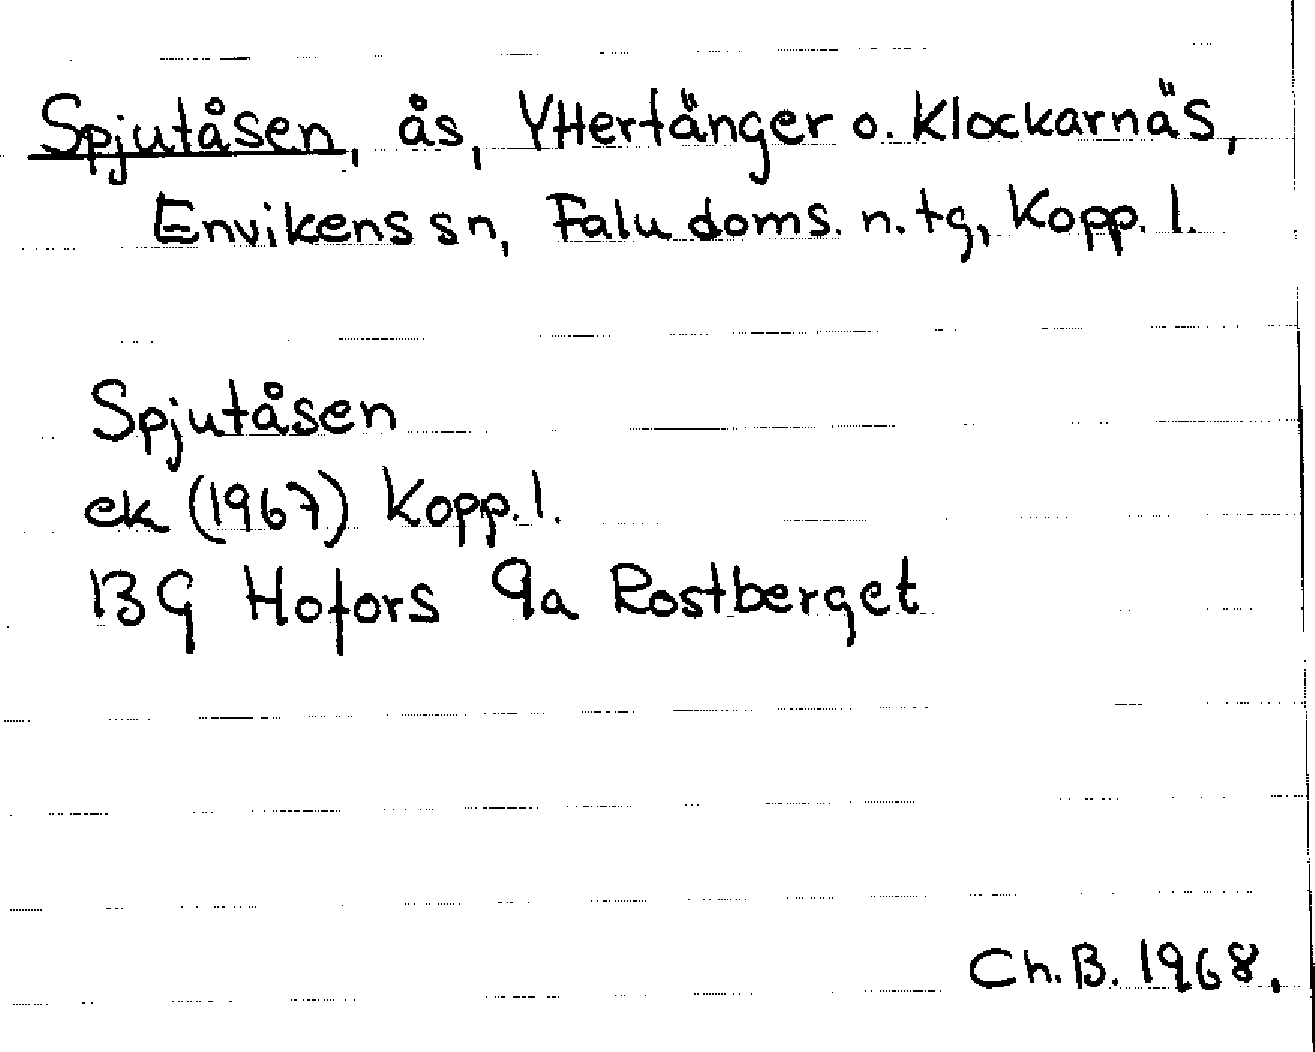 Spjutåsen, ås, Yttertänger o. Klockarnäs,
Envikens sn, Falu doms. n. tg, Kopp. l.
Spjutåsen
ek (1967) Kopp. l.
13G Hofors 9a Rostberget
Ch.B. 1968.